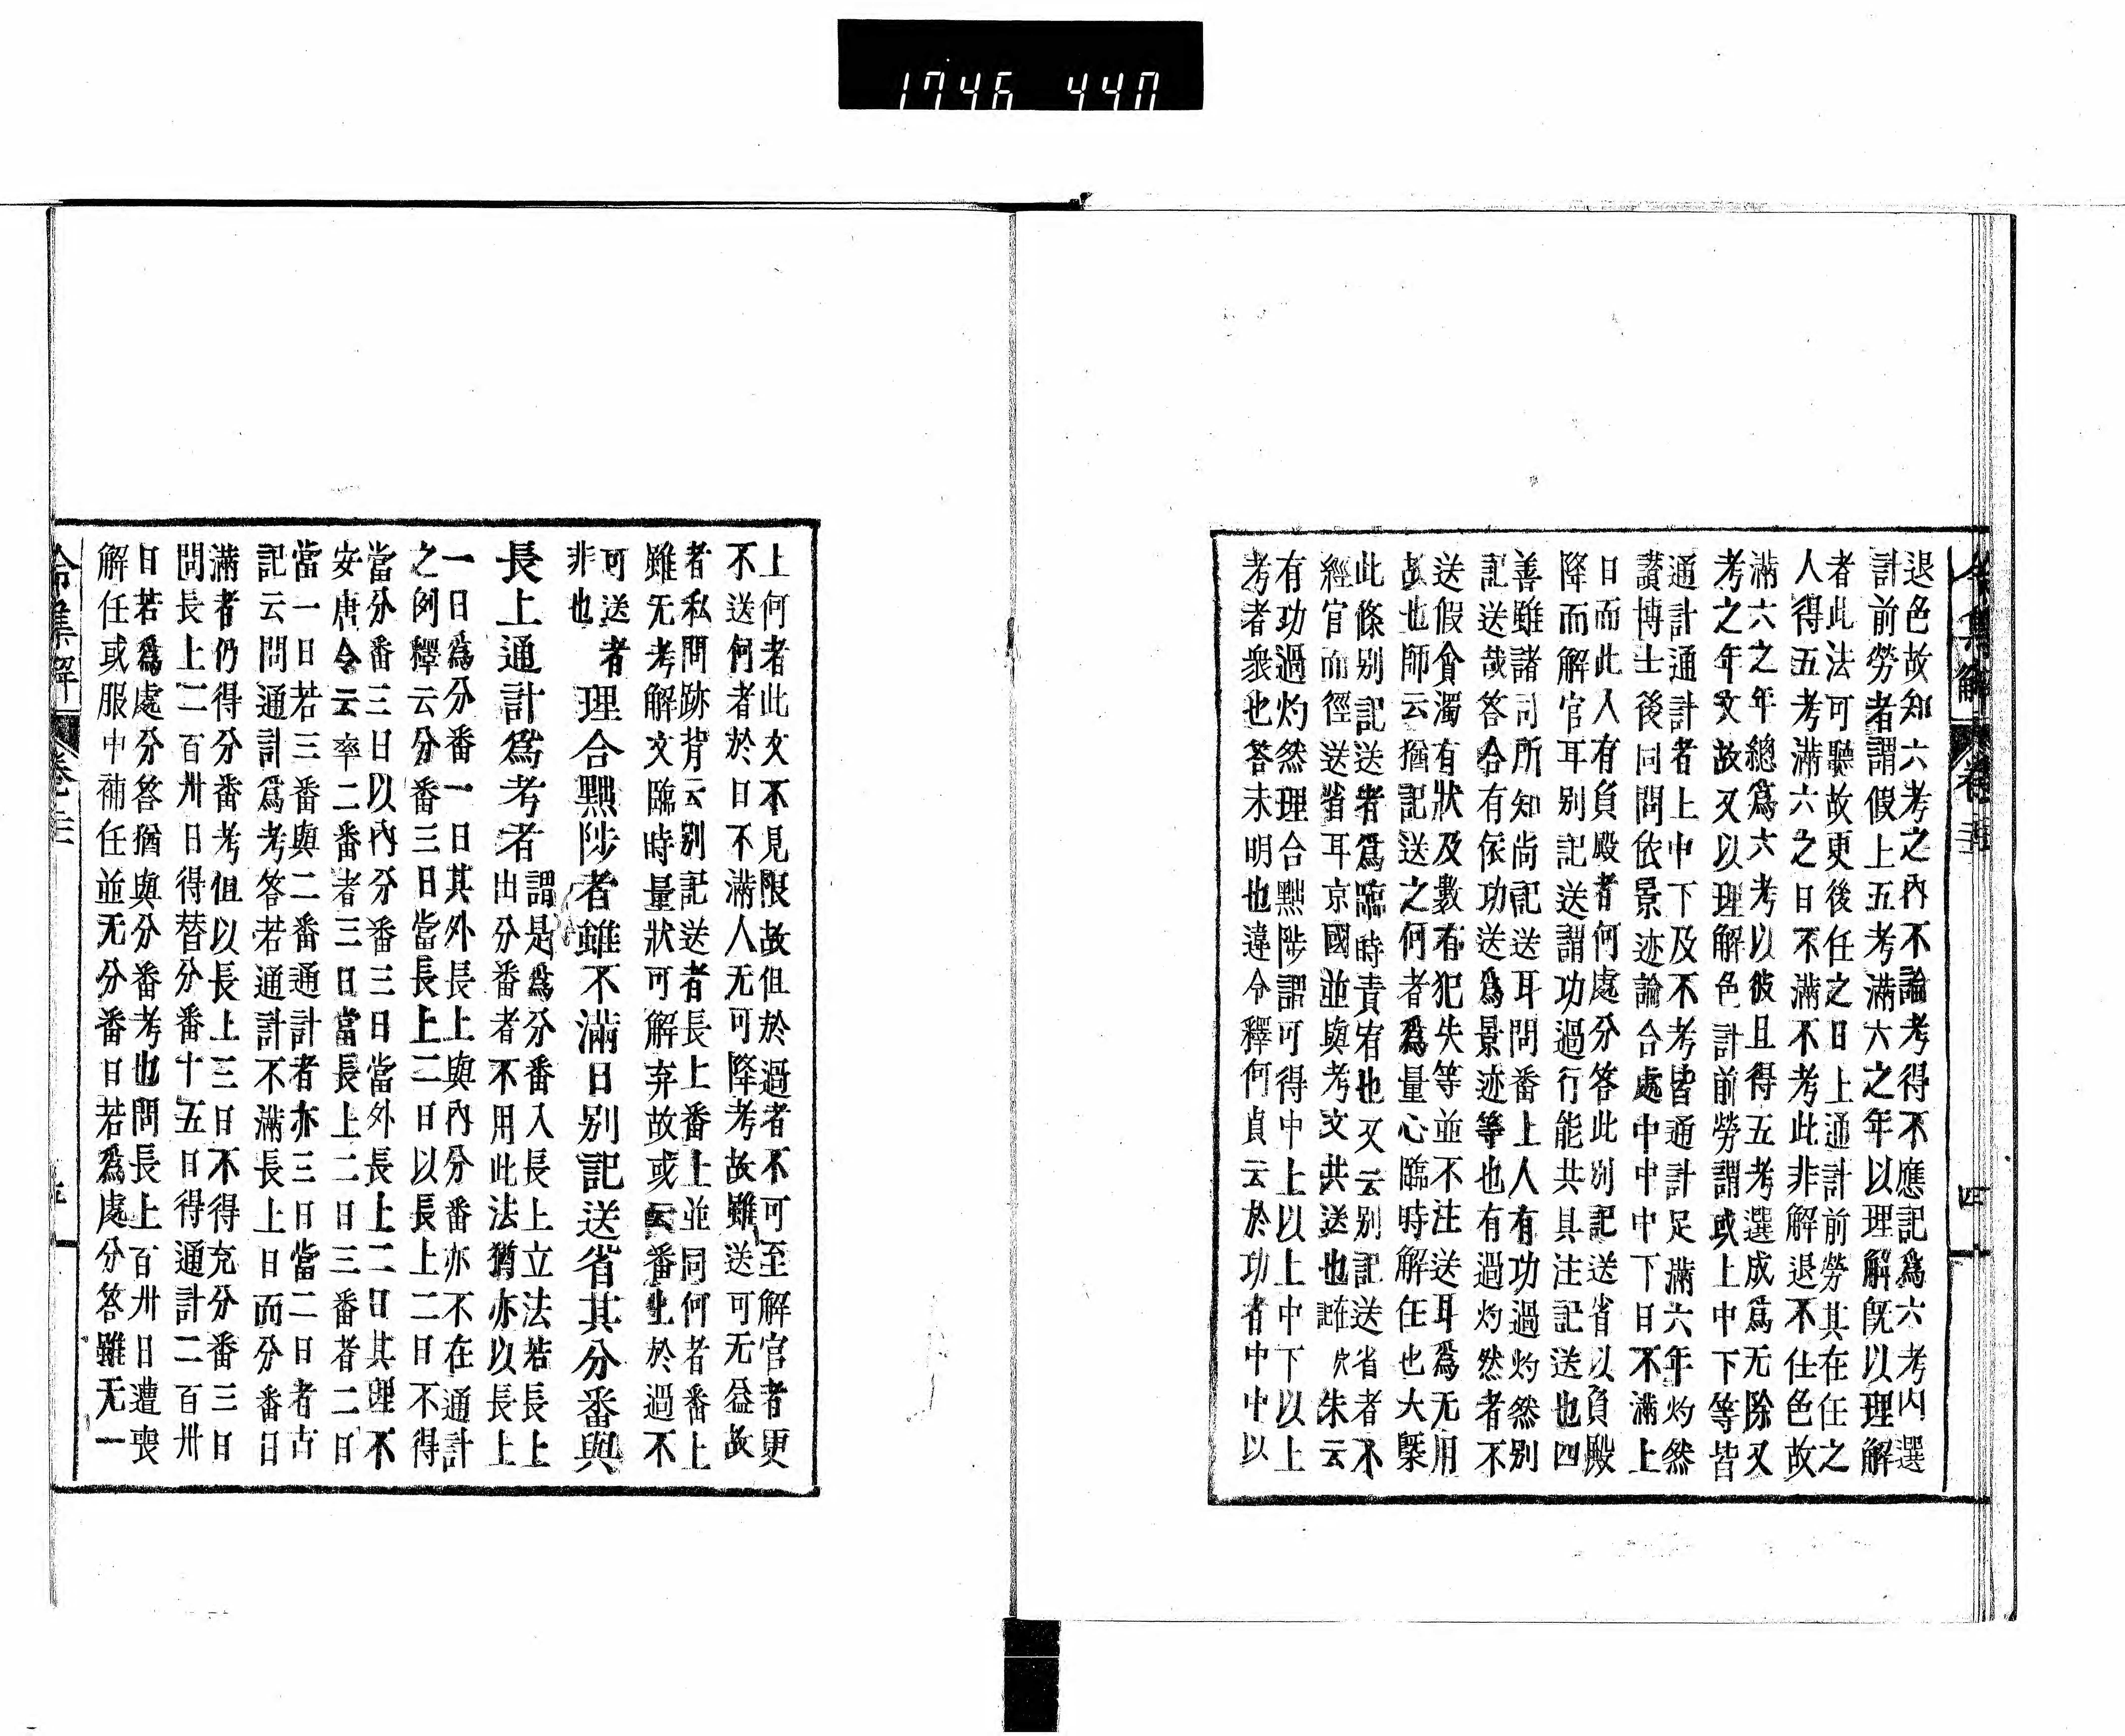 1746 440
退色故知六考之內不論考得不應記爲六考内選
計前勞者謂假上五考滿六之年以理解旣以理解
者此法可聽故更後任之日上通計前勞其在任之
人得五考滿六之日不滿不考此非解退不仕色故
滿六之年總爲六考以彼且得五考選成爲无除又
考之年文故又以理解色計前勞謂或上中下等皆
通計通計者上中下及不考皆通計足滿六年灼然
讃博士後同問依景迹論合處中中中下日不滿上
日而此人有負殿者何處分答此別記送省以負殿
降而解官耳別記送謂功過行能共具注記送也四
善雖諸司所知尚記送耳問番上人有功過灼然別
記送哉答合有依功送爲景迹等也有過灼然者不
送假貪濁有狀及數有犯失等並不注送耳爲无用
故也師云猶記送之何者爲量心臨時解任也大槩
此條別記送者爲臨時責宥也又云別記送省者不
經官而徑送省耳京國並與考文共送也 朱云
有功過灼然理合黜陟謂可得中上以上中下以上
考者衆也答未明也違令釋何貞云於功者中中以
令集解 卷 四
上何者此文不見限故但於過者不可至解官者更
不送何者於日不滿人无可降考故雖送可无益故
者私問跡背云別記送者長上番上並同何者番上
雖无考解文臨時量狀可解弃故或云番上於過不
可送者
非也
理合黜陟者雖不滿日別記送省其分番與
長上通計爲考者
謂是爲分番入長上立法若長上
出分番者不用此法猶亦以長上
一日爲分番一日其外長上與內分番亦不在通計
之例釋云分番三日當長上二日以長上二日不得
當分番三日以內分番三日當外長上二日其理不
安唐令云率二番者三日當長上二日三番者二日
當一日若三番與二番通計者亦三日當二日者古
記云問通計爲考答若通計不滿長上日而分番日
滿者仍得分番考但以長上三日不得充分番三日
問長上二百卅日得替分番十五日得通計二百卅
日若爲處分答猶與分番考也問長上百卅日遭喪
解任或服中補任並无分番日若爲處分答雖无一
令集解 卷